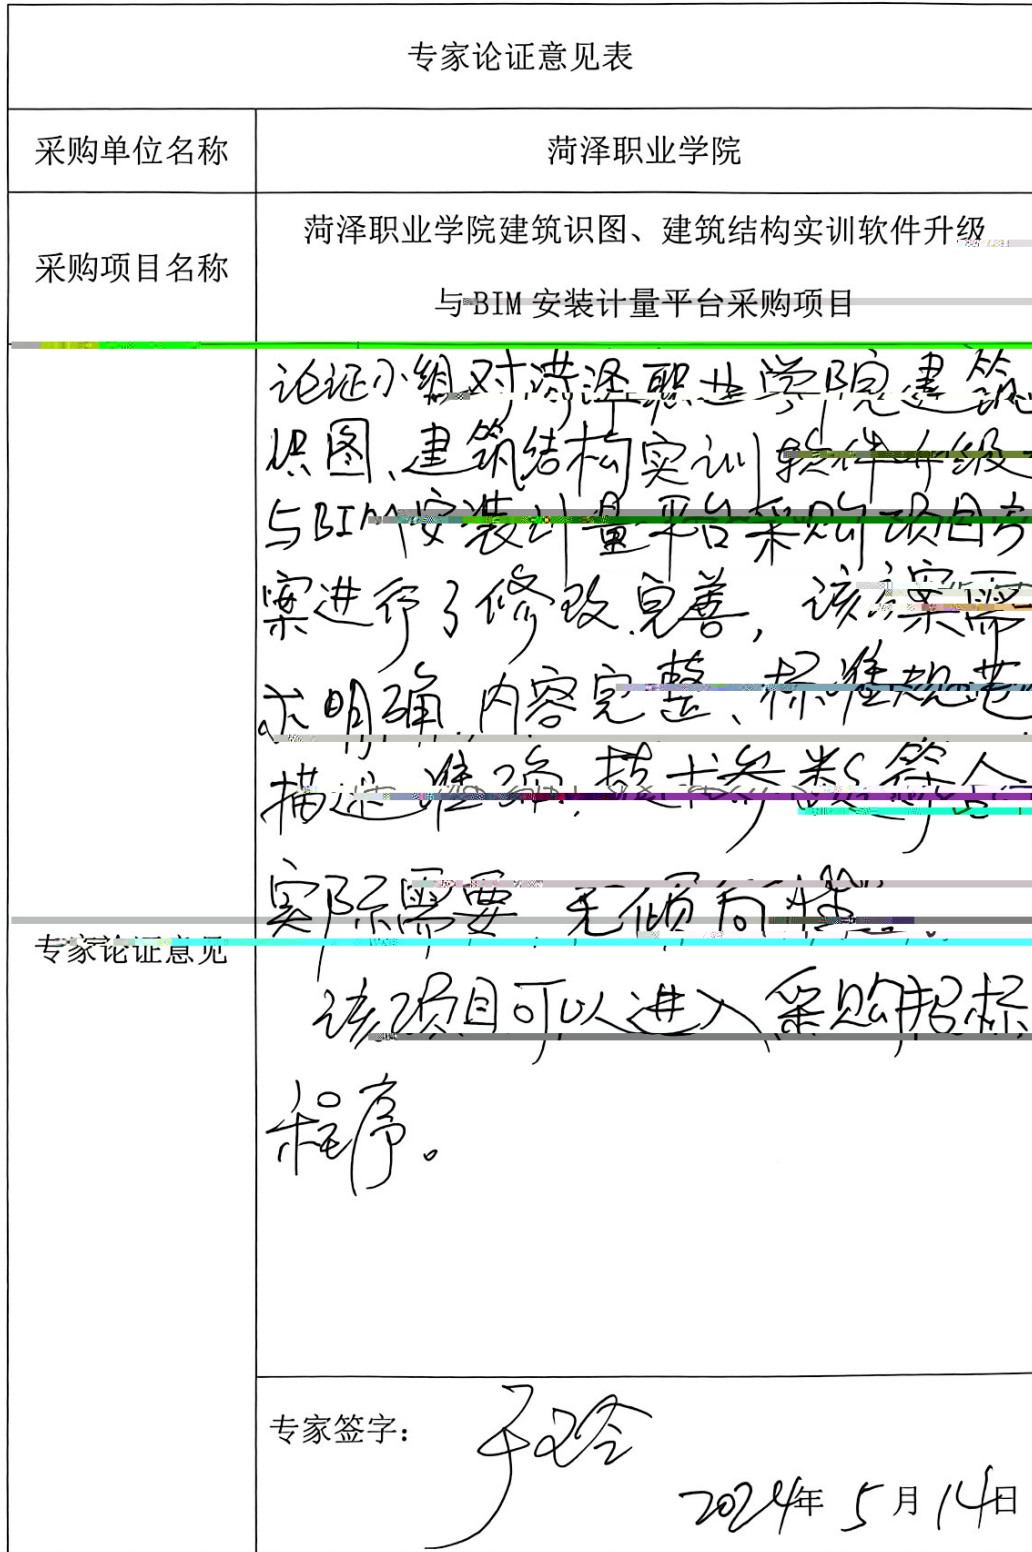 专家论证意见表
采购单位名称
菏泽职业学院
采购项目名称
菏泽职业学院建筑识图、建筑结构实训软件升级
与BIM安装计量平台采购项目
论证小组对菏泽职业学院建筑
识图、建筑结构实训软件升级
与BIM安装计量平台采购项目方
案进行了修改完善,该方案需
求明确、内容完整、标准规范
描述准确,技术参数符合
实际需要 无倾向性。
专家论证意见
该项目可以进入采购招标
程序。
专家签字:
2024年5月14日